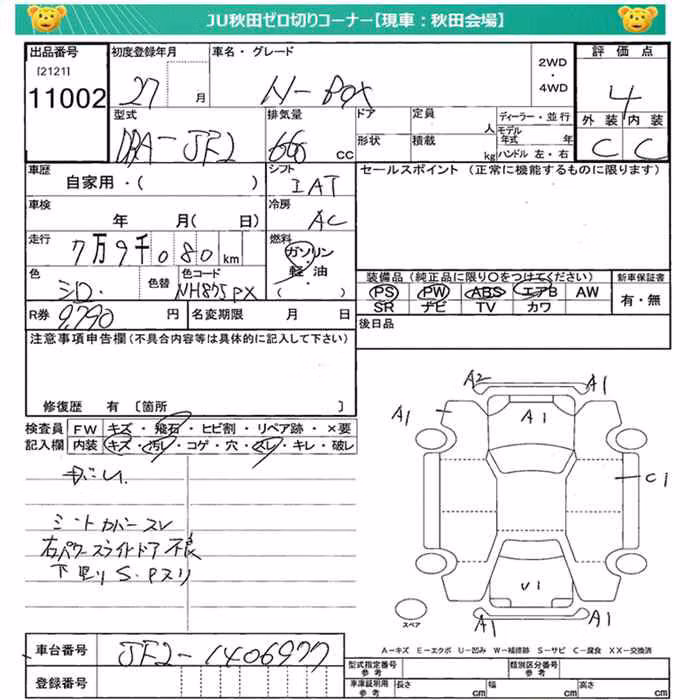 JU秋田ゼロ切りコーナー【現車：秋田会場】
出品番号 初度登録年月 車名・グレード 2WD・4WD 評価点
[2121]
11002 27 月 N-Box 4
型式 排気量 ドア 定員 人 ディーラー・並行 外装 内装
DBA-JF2 660 cc 形状 積載 kg モデル年式 年 ハンドル 左・右 C C
車歴 シフト セールスポイント (正常に機能するものに限ります)
自家用・( ) IAT
車検 冷房
年 月( 日) AC
走行 燃料
7万9千080 km ガソリン・軽油
( )
色 色替 色コード 装備品 (純正品に限り○をつけてください) 新車保証書
シロ. NH875PX PS PW ABS エアB AW 有・無
SR ナビ TV カワ
R券 9,790 円 名変期限 月 日 後日品
注意事項申告欄 (不具合内容等は具体的に記入して下さい)
修復歴 有 [箇所 ]
検査員記入欄 FW キズ・飛石・ヒビ割・リペア跡・×要
内装 キズ・汚レ・コゲ・穴・スレ・キレ・破レ
シートカバースレ
右パワースライドドア不良
下廻りS.Pスリ
A2 A1
A1 A1
C1
U1
A1 A1
スペア
A-キズ E-エクボ U-凹み W-補修跡 S-サビ C-腐食 XX-交換済
車台番号 JF2-1406977
登録番号
型式指定番号 参考 類別区分番号 参考
車庫証明用 参考 長さ cm 幅 cm 高さ cm